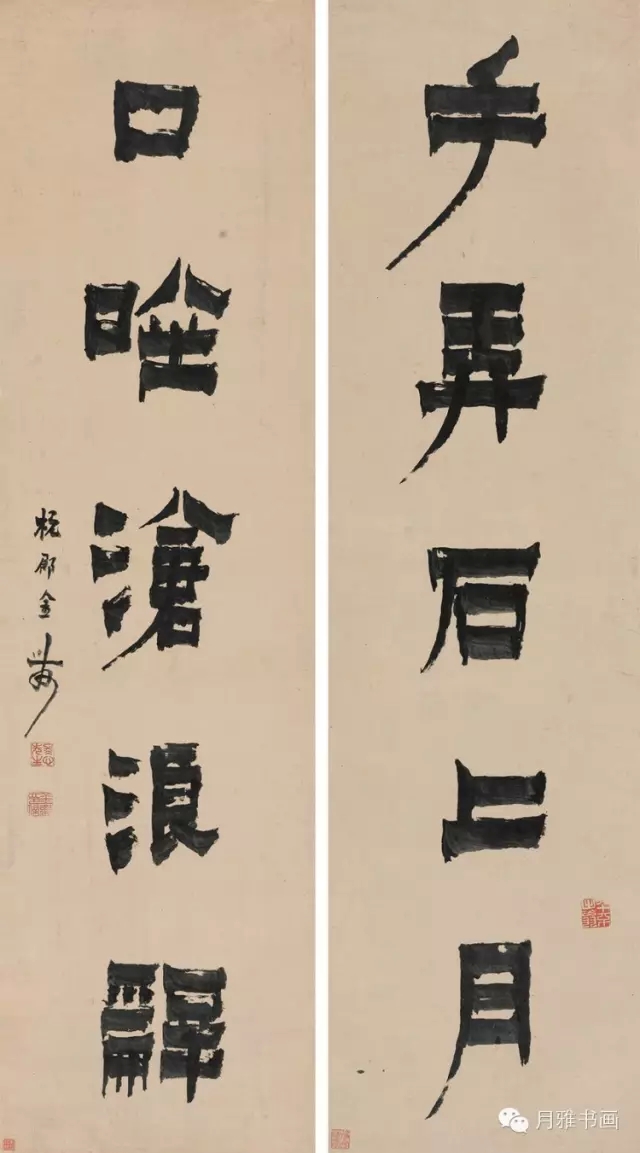 手弄石上月
口唫滄浪辭
杭郡金農
月雅书画